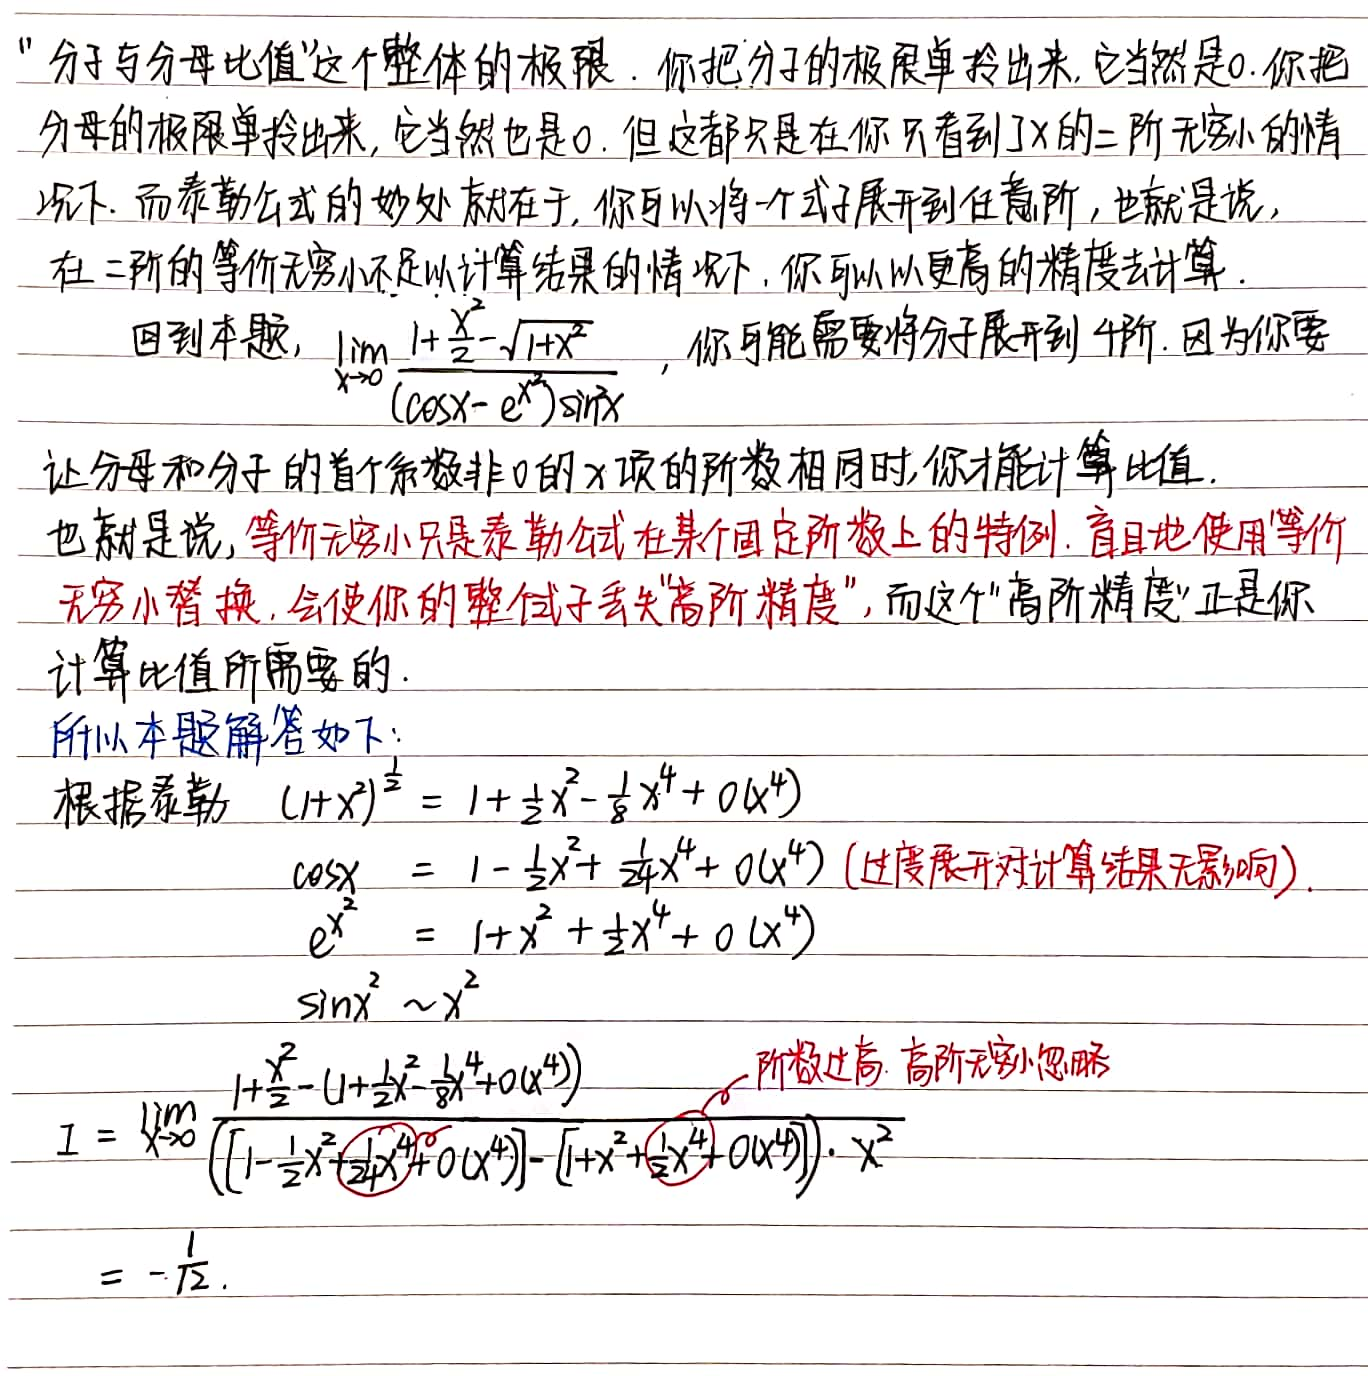 "分子与分母比值"这个整体的极限. 你把分子的极限单拎出来, 它当然是0. 你把
分母的极限单拎出来, 它当然也是0. 但这都只是在你只看到了x的二阶无穷小的情
况下. 而泰勒公式的妙处就在于, 你可以将一个式子展开到任意阶, 也就是说,
在二阶的等价无穷小不足以计算结果的情况下, 你可以以更高的精度去计算.
回到本题, lim_{x→0} (1+x²/2-√(1+x²))/((cosx-e^{x²})sin²x) , 你可能需要将分子展开到4阶. 因为你要
让分母和分子的首个系数非0的x项的阶数相同时, 你才能计算比值.
也就是说, 等价无穷小只是泰勒公式在某个固定阶数上的特例. 盲目地使用等价
无穷小替换, 会使你的整个式子丢失"高阶精度", 而这个"高阶精度"正是你
计算比值所需要的.
所以本题解答如下:
根据泰勒 (1+x²)^{1/2} = 1+1/2x²-1/8x⁴+o(x⁴)
cosx = 1-1/2x²+1/24x⁴+o(x⁴) (过度展开对计算结果无影响).
e^{x²} = 1+x²+1/2x⁴+o(x⁴)
sinx² ~ x²
阶数过高. 高阶无穷小忽略
I = lim_{x→0} (1+x²/2-(1+1/2x²-1/8x⁴+o(x⁴)))/(([1-1/2x²+1/24x⁴+o(x⁴)]-[1+x²+1/2x⁴+o(x⁴)])·x²)
= -1/12.